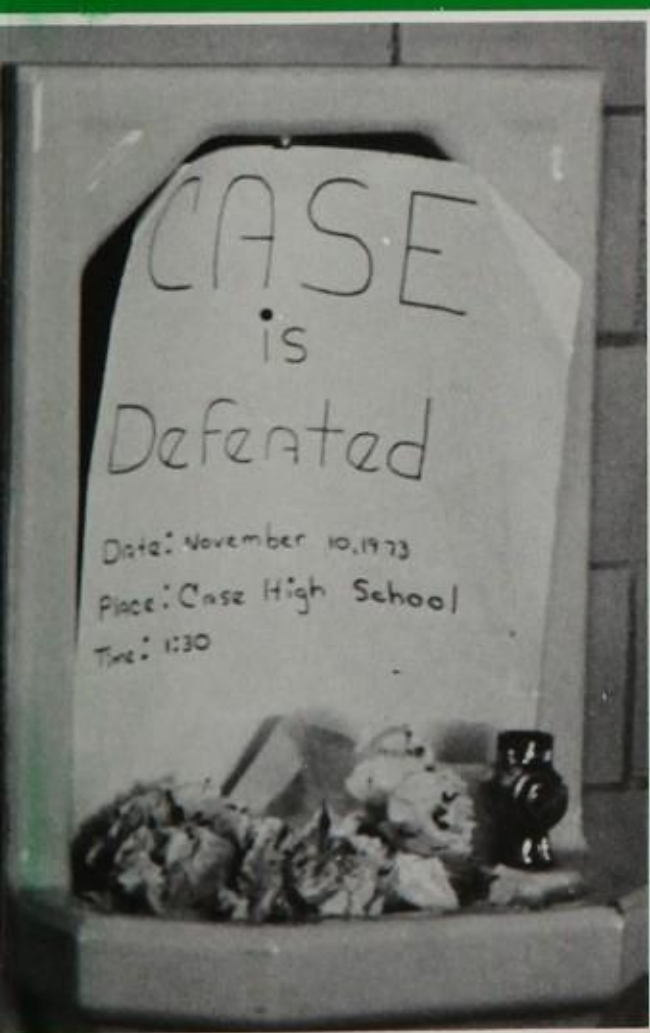 CASE
is
Defeated
Date: November 10, 1973
Place: Case High School
Time: 1:30